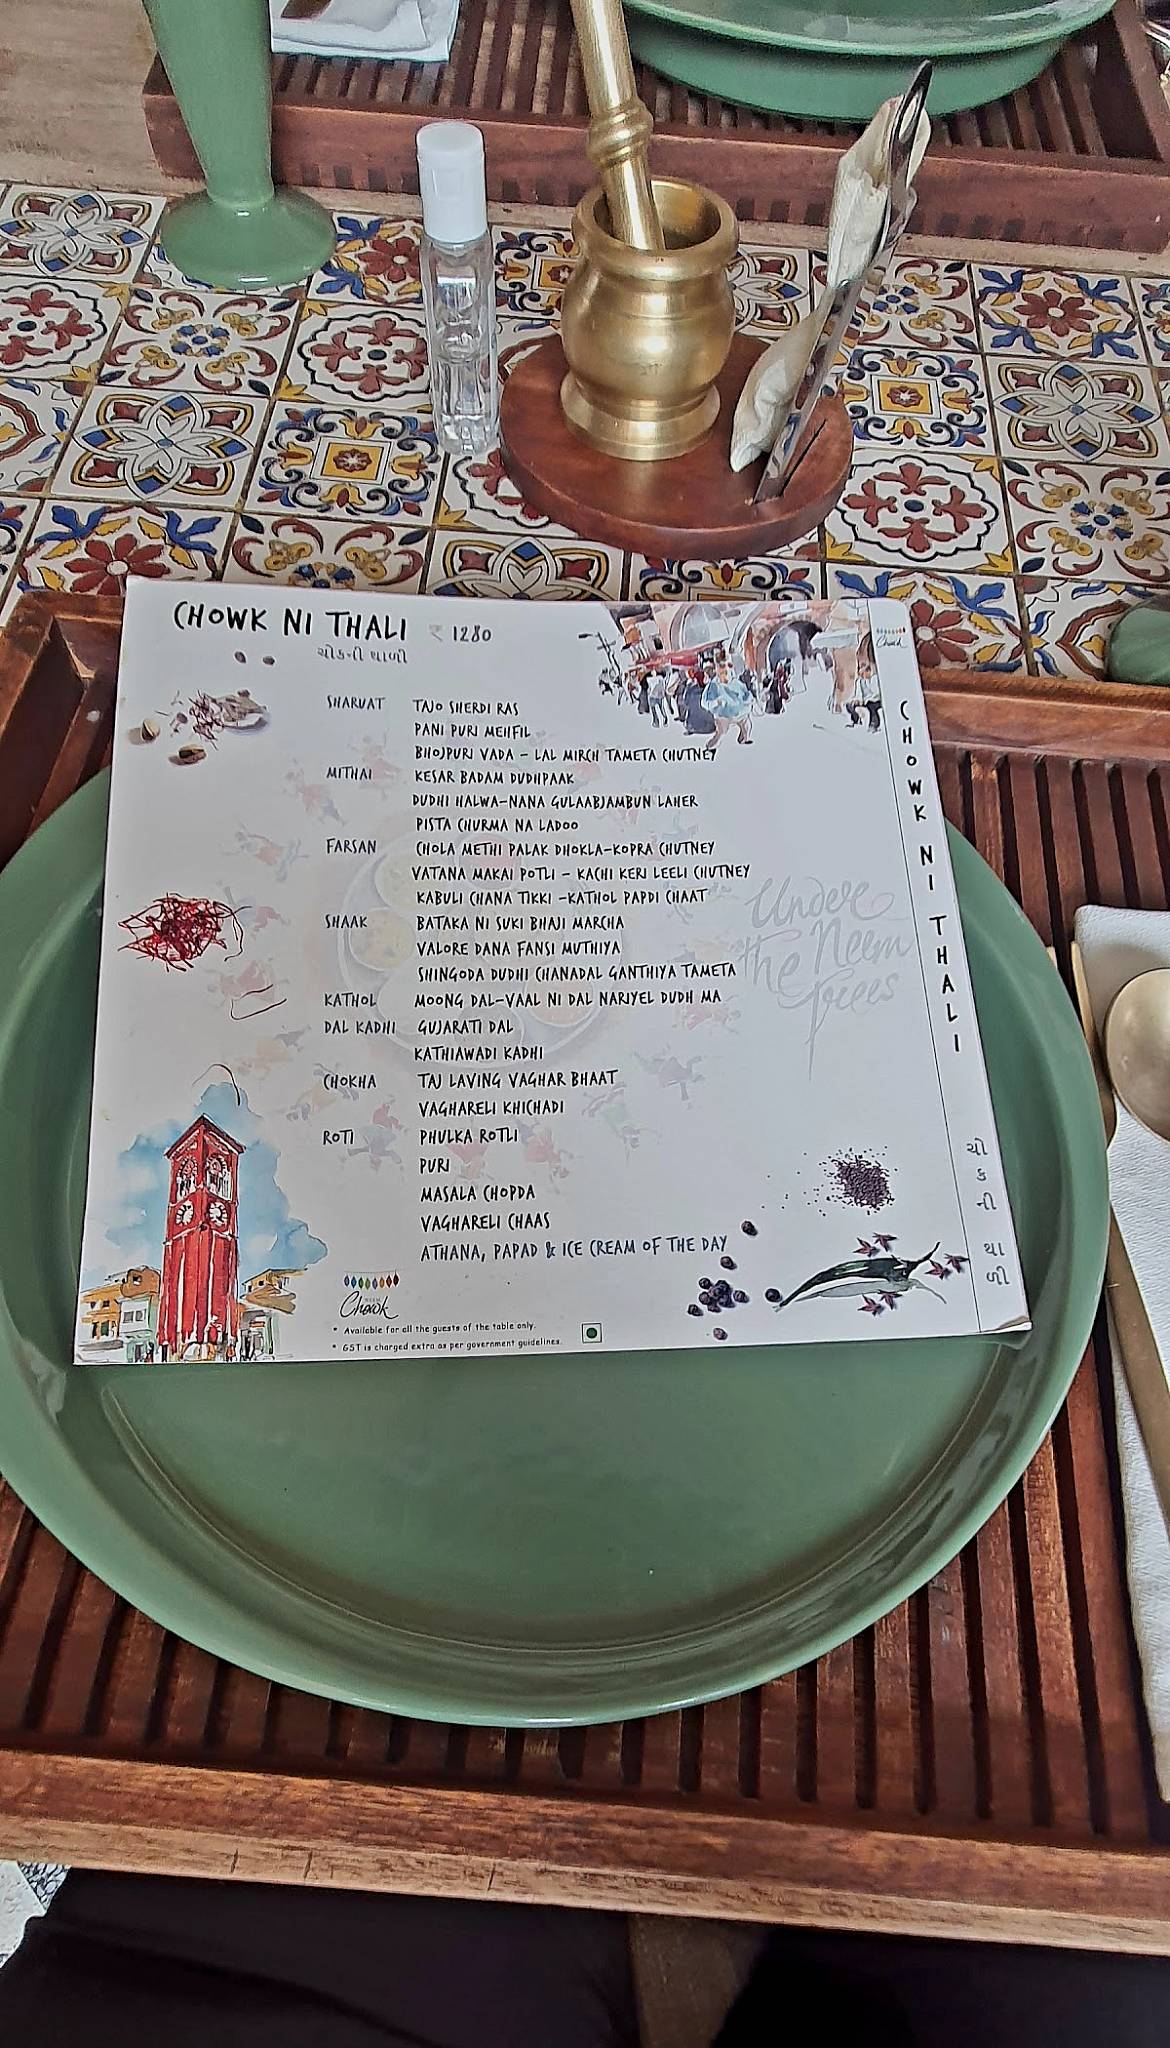 CHOWK NI THALI ₹ 1280
ચોકની થાળી
SHARUAT TAJO SHERDI RAS
PANI PURI MEHFIL
BHOJPURI VADA - LAL MIRCH TAMETA CHUTNEY
MITHAI KESAR BADAM DUDHPAAK
DUDHI HALWA-NANA GULAABJAMBUN LAHER
PISTA CHURMA NA LADOO
FARSAN CHOLA METHI PALAK DHOKLA-KOPRA CHUTNEY
VATANA MAKAI POTLI - KACHI KERI LEELI CHUTNEY
KABULI CHANA TIKKI -KATHOL PAPDI CHAAT
SHAAK BATAKA NI SUKI BHAJI MARCHA
VALORE DANA FANSI MUTHIYA
SHINGODA DUDHI CHANADAL GANTHIYA TAMETA
KATHOL MOONG DAL-VAAL NI DAL NARIYEL DUDH MA
DAL KADHI GUJARATI DAL
KATHIAWADI KADHI
CHOKHA TAJ LAVING VAGHAR BHAAT
VAGHARELI KHICHADI
ROTI PHULKA ROTLI
PURI
MASALA CHOPDA
VAGHARELI CHAAS
ATHANA, PAPAD & ICE CREAM OF THE DAY
Chowk
* Available for all the guests of the table only.
* GST is charged extra as per government guidelines.
Under
the Neem
Trees
Chowk
CHOWK NI THALI
ચોકની થાળી